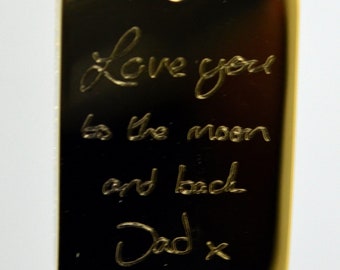 Love you
to the moon
and back
Dad x